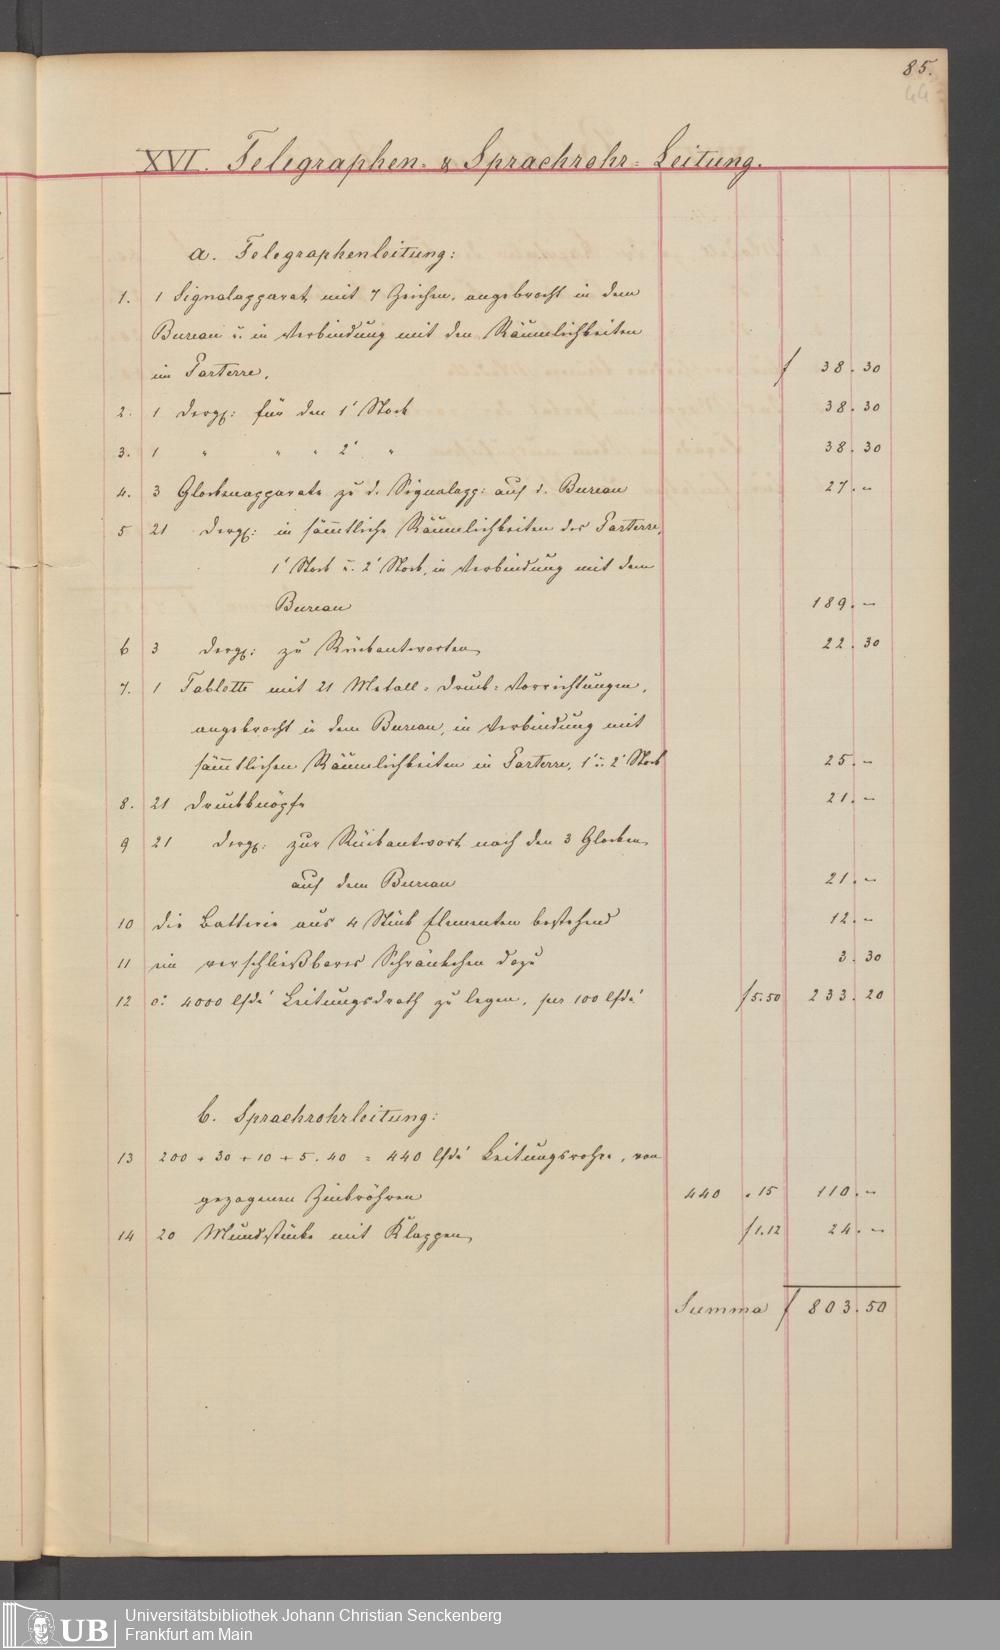 85.
44
XVI. Telegraphen- & Sprachrohr-Leitung.
a. Telegraphenleitung:
1. 1 Signalapparat mit 7 Zeichen, angebracht in dem
Bureau u. in Verbindung mit den Räumlichkeiten
im Parterre. f 38. 30
2. 1 dergl: für den 1' Stock 38. 30
3. 1 " " " 2' " 38. 30
4. 3 Glockenapparate zu d. Signalapp: auf d. Bureau 27. -
5 21 dergl: in sämtliche Räumlichkeiten des Parterre,
1' Stock u. 2' Stock, in Verbindung mit dem
Bureau 189. -
6 3 dergl: zu Rückantworten 22. 30
7. 1 Tablette mit 21 Metall-Druck-Vorrichtungen,
angebracht in dem Bureau, in Verbindung mit
sämtlichen Räumlichkeiten in Parterre, 1' u. 2' Stock 25. -
8. 21 Druckknöpfe 21. -
9 21 dergl: zur Rückantwort nach den 3 Glocken
auf dem Bureau 21. -
10 die Batterie aus 4 Stück Elementen bestehend 12. -
11 ein verschließbares Schränkchen dazu 3. 30
12 ca: 4000 lfde' Leitungsdrath zu legen, per 100 lfde' f 5.50 233. 20
b. Sprachrohrleitung:
13 200 + 30 + 10 + 5. 40 = 440 lfde' Leitungsrohre, von
gezogenen Zinkröhren 440 " 15 110. -
14 20 Mundstücke mit Klappen f 1.12 24. -
Summa f 803. 50
UB
Universitätsbibliothek Johann Christian Senckenberg
Frankfurt am Main